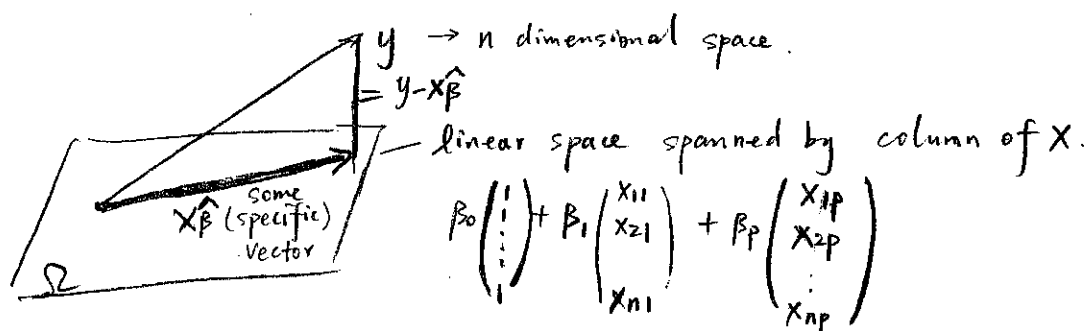 y → n dimensional space.
= y-Xβ̂
linear space spanned by column of X.
Xβ̂ some (specific) vector
β₀ (1 1 ⋮ 1) + β₁ (x₁₁ x₂₁ xₙ₁) + βₚ (x₁ₚ x₂ₚ ⋮ xₙₚ)
Ω